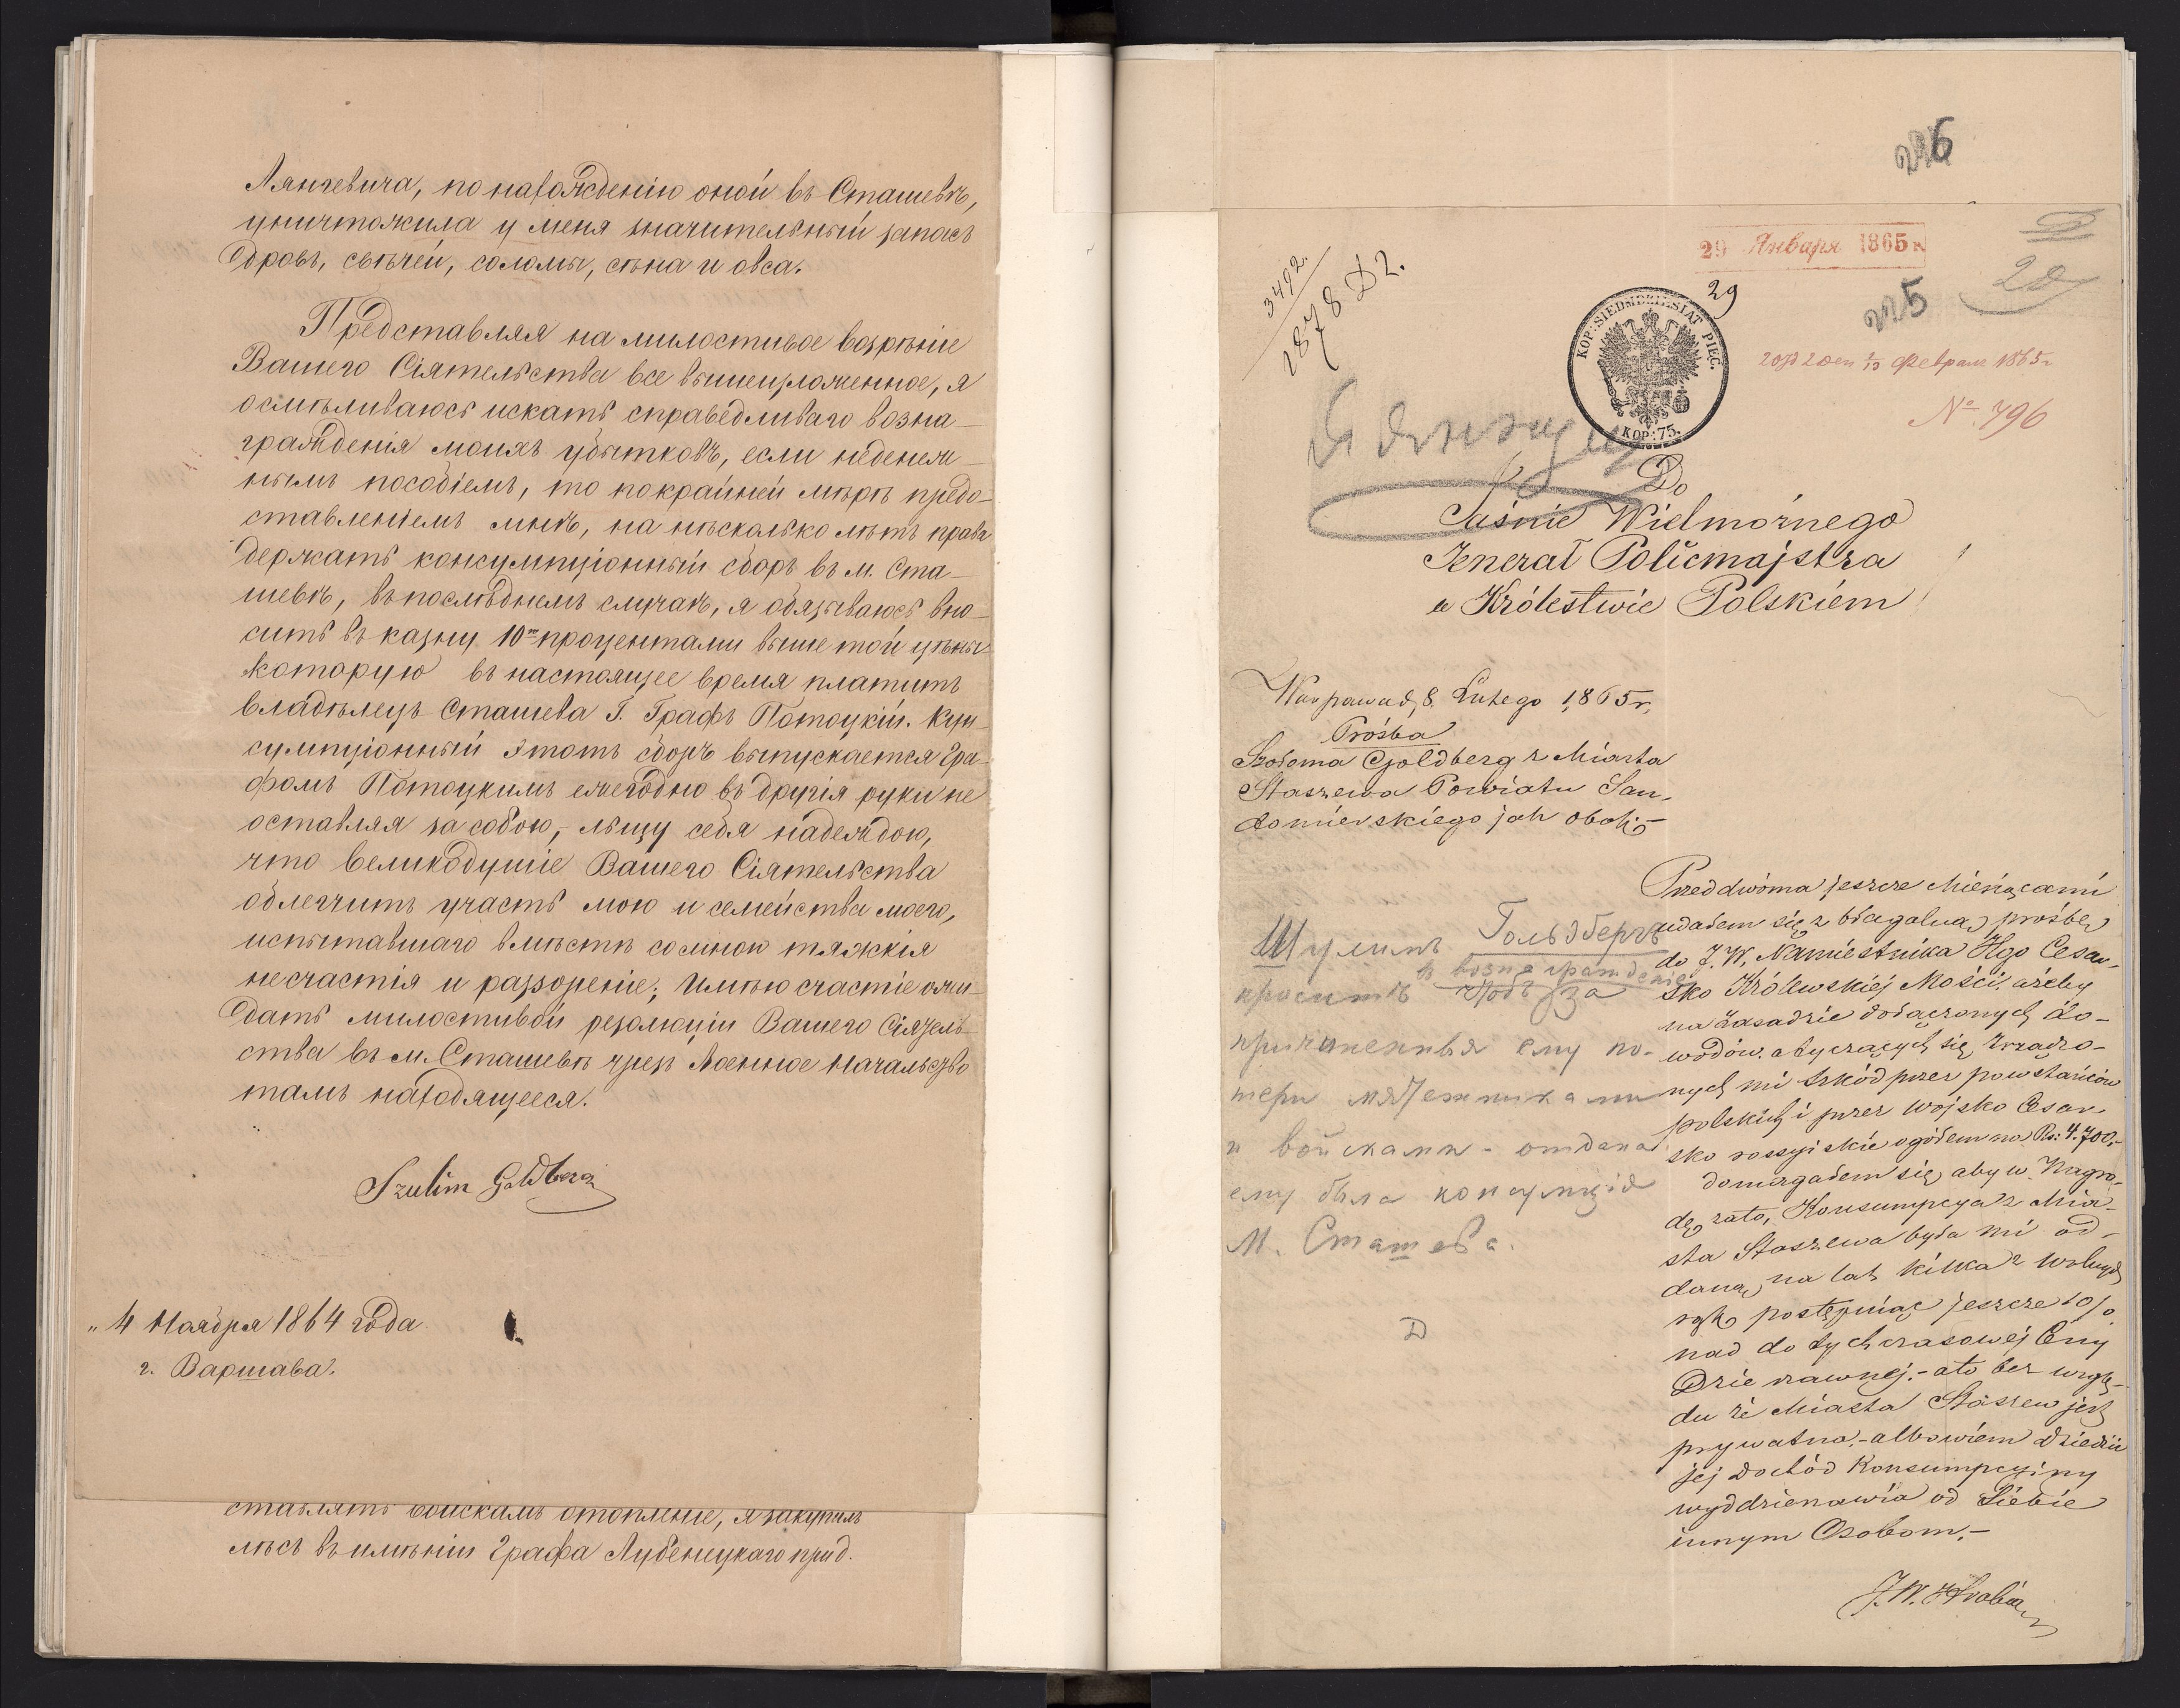 Лянгевича, по нахожденію оной въ Сташевѣ,
уничтожила у меня значительный запасъ
дровъ, свѣчей, соломы, сѣна и овса.
Представляя на милостивое воззрѣніе
Вашего Сіятельства все вышеизложенное, я
осмѣливаюсь искать справедливаго возна-
гражденія моихъ убытковъ, если неденеж-
нымъ пособіемъ, то покрайней мѣрѣ предо-
ставленіемъ мнѣ, на нѣсколько лѣтъ права
держать консумпціонный сборъ въ м. Ста-
шевѣ, въ послѣднемъ случаѣ, я обязываюсь вно-
сить въ казну 10ю процентами выше той цѣны
которую въ настоящее время платитъ
владѣлецъ Сташева Г. Графъ Потоцкій. Кун-
сумпціонный этотъ сборъ выпускается Гра-
фомъ Потоцкимъ ежегодно въ другія руки не
оставляя за собою, - льщу себя надеждою,
что великодушіе Вашего Сіятельства
облегчитъ участь мою и семейства моего,
испытавшаго вмѣстѣ со мною тяжкія
несчастія и раззореніе; Имѣю счастіе ожи-
дать милостивой резолюціи Вашего Сіятель-
ства въ м. Сташевѣ чрезъ Военное Начальство
тамъ находящееся.
Szulim Goldberg
„4 Ноября 1864 года.
г. Варшава.
ставлять войскамъ отопленіе, я закупилъ
лѣсъ въ имѣніи Графа Лубенецкаго при д.
226
29 Января 1865 г.
20
3492.
1878 D2.
29
225
KOP: SIEDMDZIESIĄT PIĘĆ.
KOP: 75.
Февраля 1865 г
№ 796
Do
Jaśnie Wielmożnego
Jenerał Policmajstra
w Królestwie Polskiém
Warszawa d. 8 Lutego 1865 r.
Prośba
Szoloma Goldberg z Miasta
Staszewa Powiatu San-
domierskiego jak obok.-
Przed dwoma jeszcze Miesiącami
udałem się z błagalną prośbą
do J. W. Namiestnika JEgo Cesar-
sko Królewskiéj Mości, ażeby
na zasadzie dołączonych do-
wodów, a tyczących się zrządzo-
nych mi szkód przez powstańców
polskich i przez wojsko Cesar-
sko rossyiskie ogółem na Rs: 4.700,-
domagałem się, aby w Nagro-
dę zato, Konsumpcya z Mia-
sta Staszewa była mi od-
daną, na lat kilka z wolnych
rąk, postępując jeszcze 10%
nad dotychczasowej Ceny
Dzierżawnej.- a to bez wzglę-
du że Miasta Staszew jest
prywatna,- albowiem Dziedzic
jej Dochód Konsumpcyiny
wydzierżawia od Siebie
innym Osobom.-
J. W. Hrabia
Шулимъ Гольдбергъ
проситъ чтобъ въ вознагражденіе за
причиненныя ему по-
тери мятежниками
и войсками - отдана
ему была консумпція
М. Сташева.
D